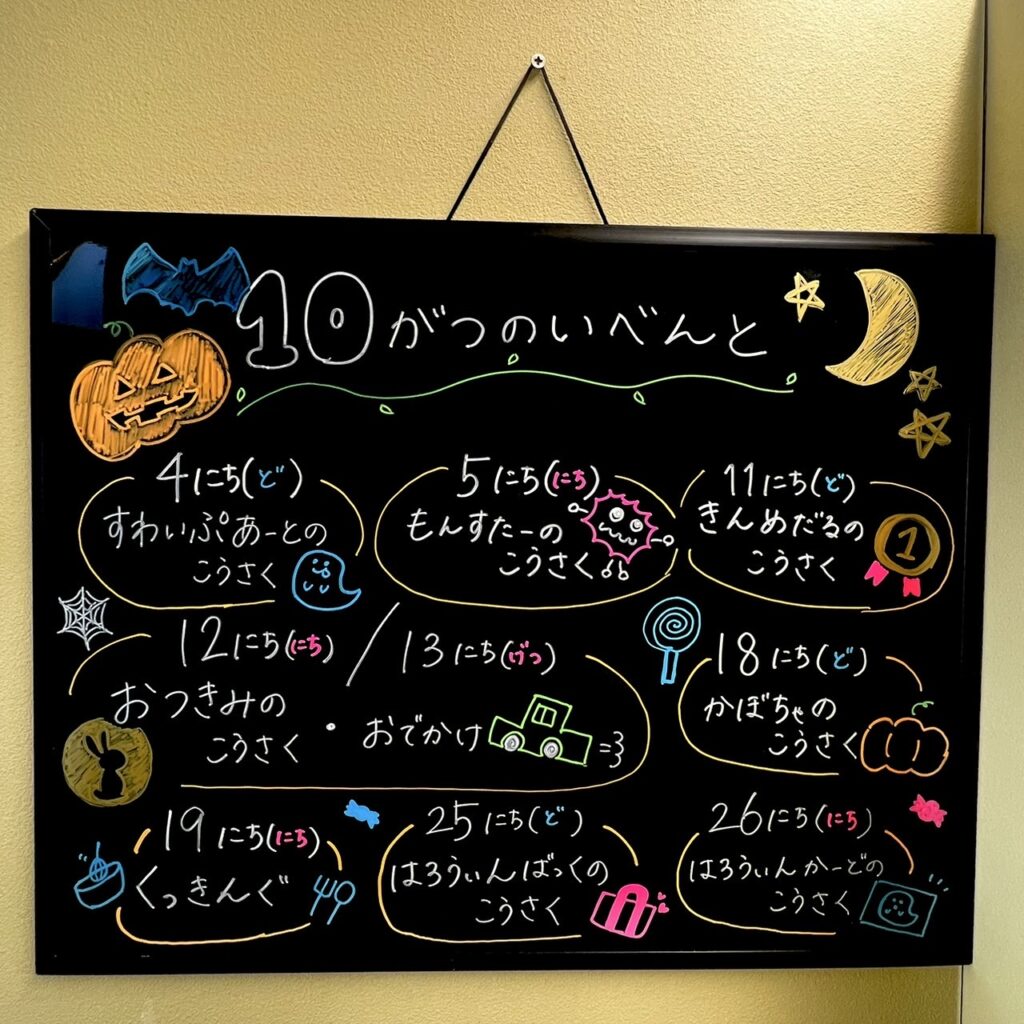 10がつのいべんと
4にち(ど)
すわいぷあーとの
こうさく
5にち(にち)
もんすたーの
こうさく
11にち(ど)
きんめだるの
こうさく
1
12にち(にち)/13にち(げつ)
おつきみの
こうさく
・おでかけ
18にち(ど)
かぼちゃの
こうさく
19にち(にち)
くっきんぐ
25にち(ど)
はろうぃんばっくの
こうさく
26にち(にち)
はろうぃんかーどの
こうさく